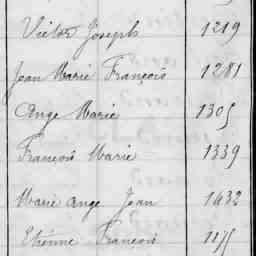 Victor Joseph 1219
Jean Marie François 1281
Ange Marie 1305
François Marie 1339
Marie Ange Jean 1432
Etienne François